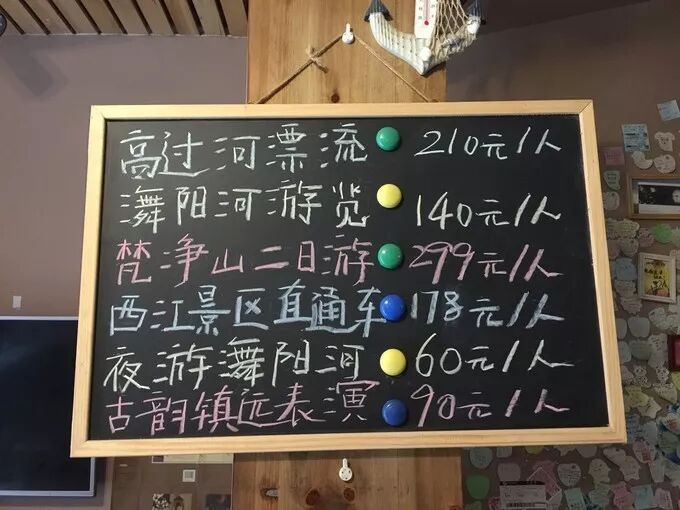 高过河漂流 210元/人
舞阳河游览 140元/人
梵净山二日游 299元/人
西江景区直通车 178元/人
夜游舞阳河 60元/人
古韵镇远表演 90元/人